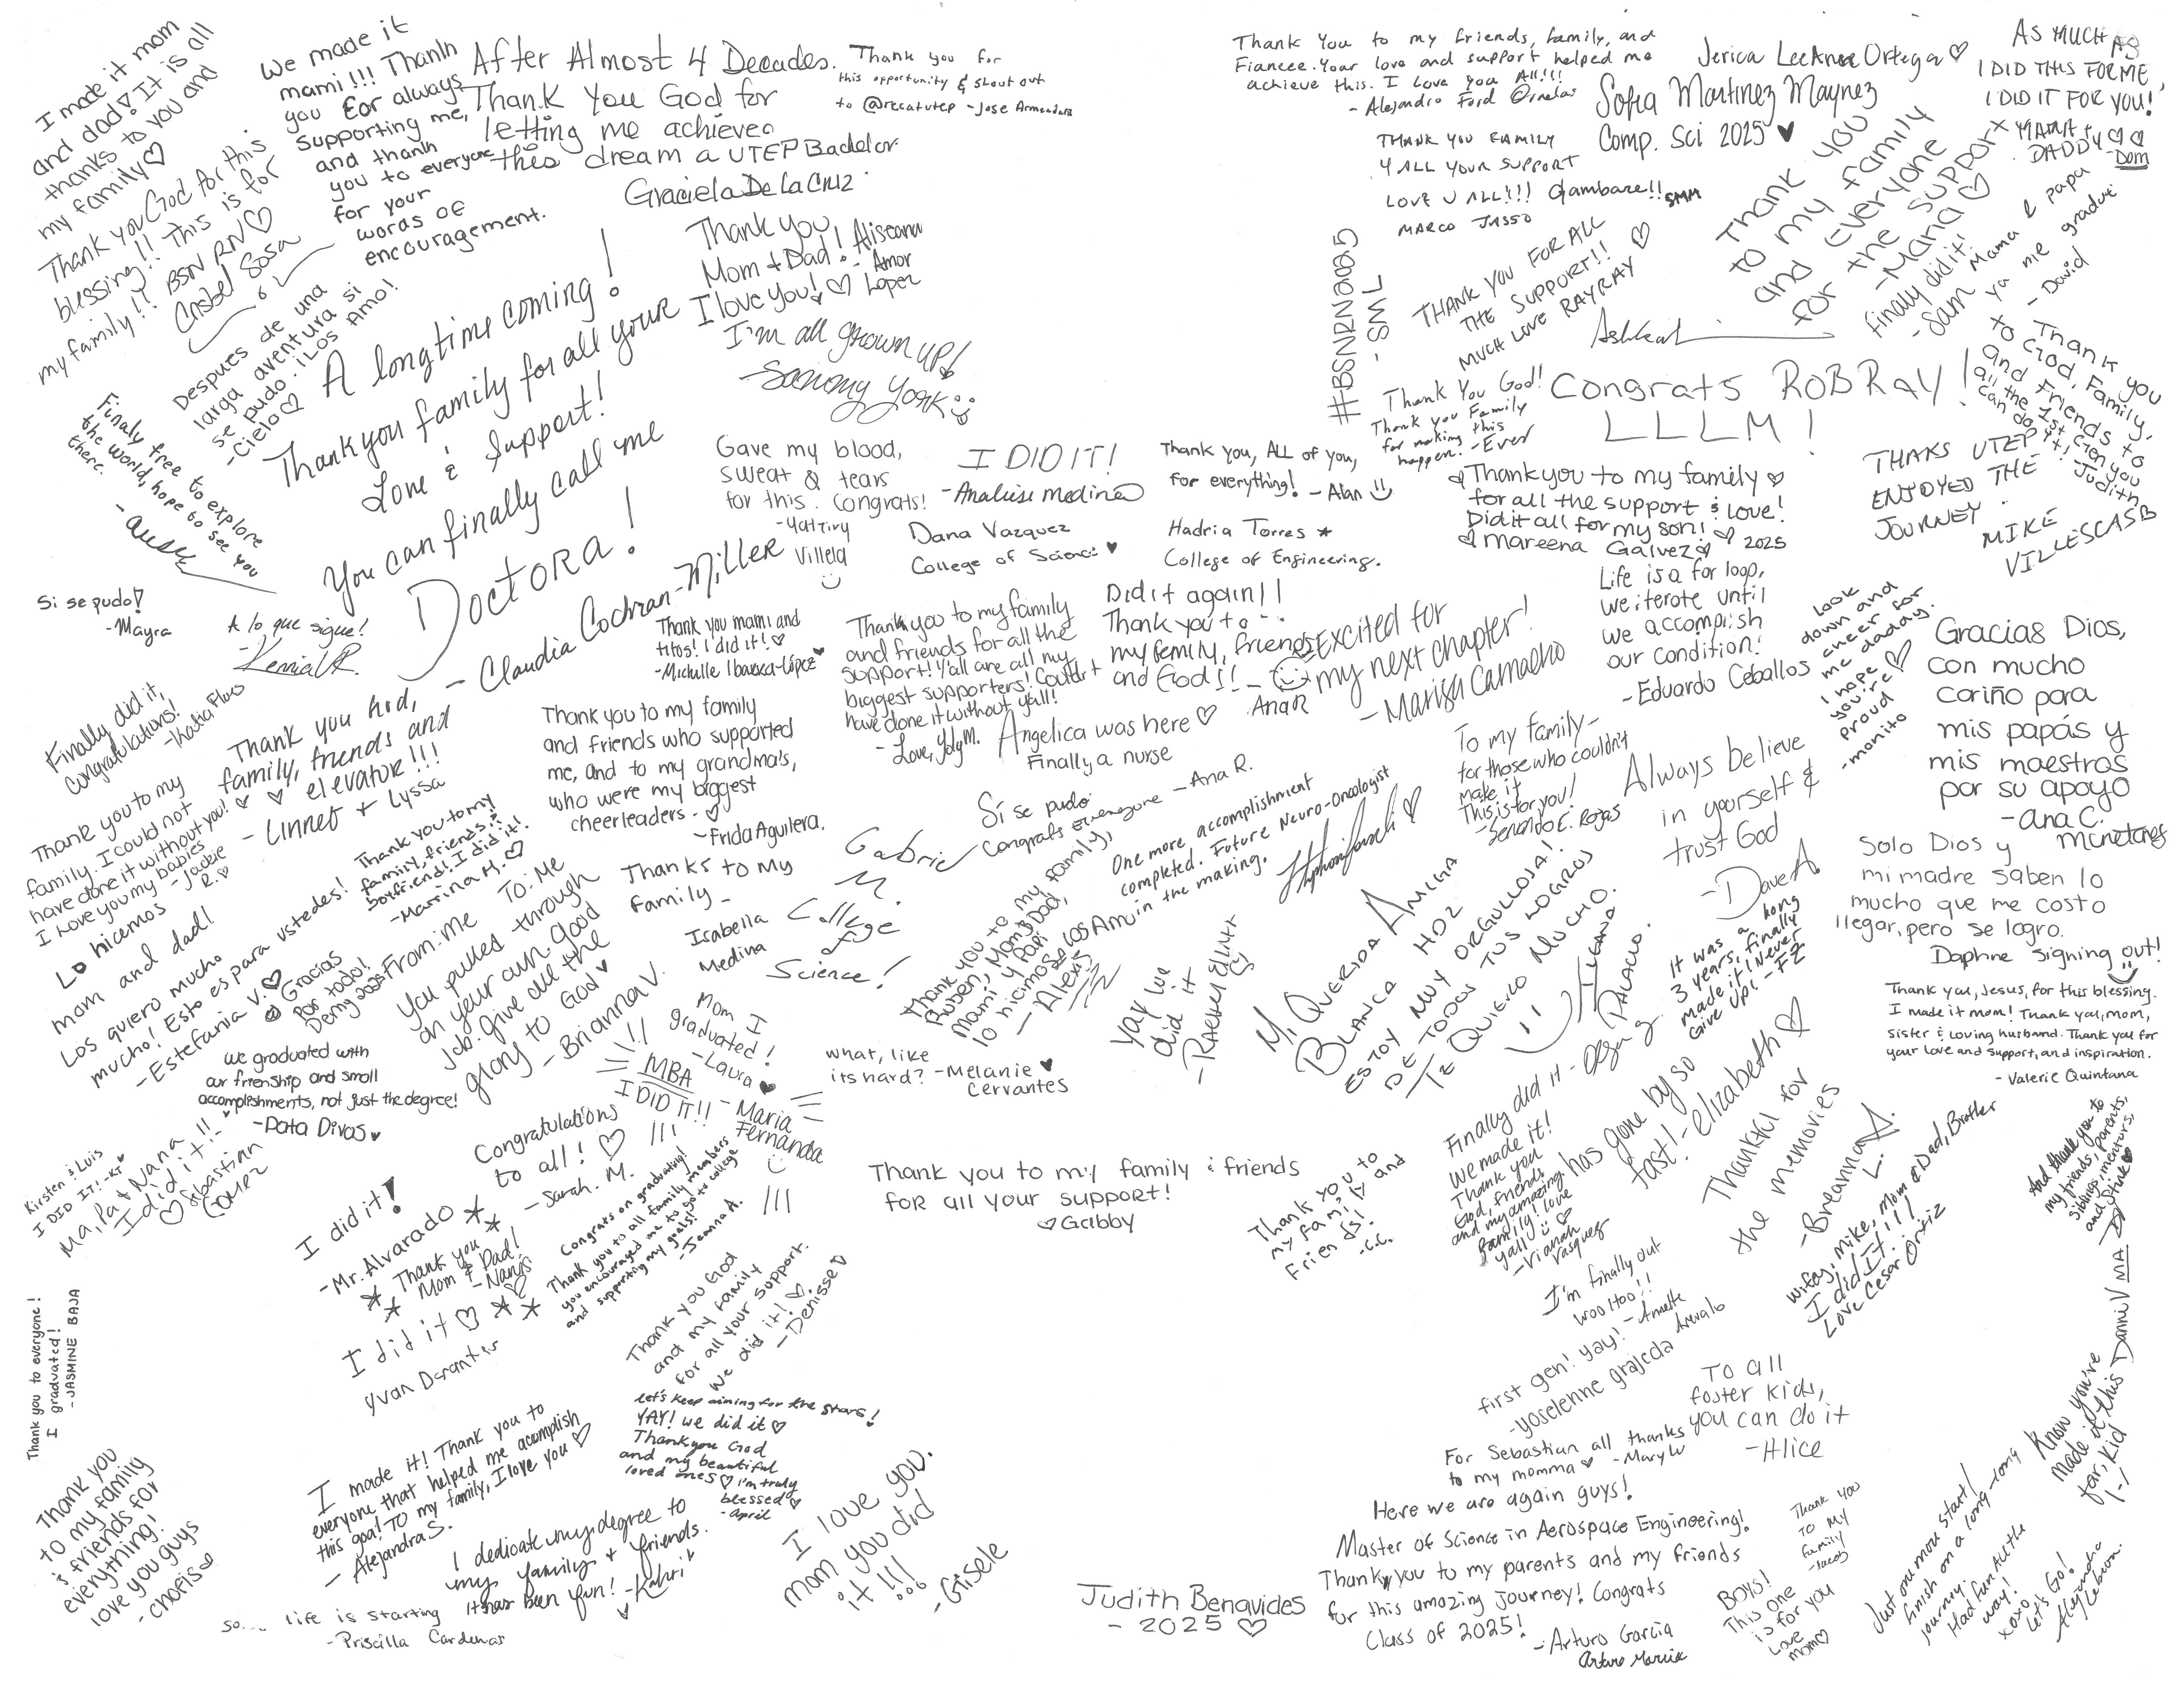 I made it mom
and dad! It is all
thanks to you and
my family♡
We made it
mami!!! Thank
you for always
supporting me,
and thank
you to everyone
for your
words of
encouragement.
After Almost 4 Decades.
Thank You God for
letting me achieve
this dream a UTEP Bachelor.
Graciela De La Cruz
Thank you for
this opportunity & shout out
to @recatutep - Jose Armendariz
Thank you God for this
blessing!! This is for
my family!! BSN RN♡
Crisbel Sosa
Thank you
Mom + Dad!
I love you! ♡
Aliseana
Amor
Lopez
I'm all grown up!
- Sammy York
Despues de una
larga aventura si
se pudo. ¡Los Amo!
- Cielo♡
A longtime coming!
Thank you family for all your
Love & Support!
You can finally call me
Doctora!
- Claudia Cochran-Miller
Finaly free to explore
the world, hope to see you
there.
Gave my blood,
sweat & tears
for this. Congrats!
- Yatziry
Villela
I DID IT!
- Analuise Medina
Dana Vazquez
College of Science ♥
Thank you, ALL of you,
for everything! - Alan
Hadria Torres ★
College of Engineering.
Thank You to my friends, family, and
Fiancee. Your love and support helped me
achieve this. I love you All!!!
- Alejandro Ford Ornelas
Jerica LeeAnna Ortega ♡
Sofia Martinez Maynez
Comp. Sci 2025 ♥
AS MUCH AS
I DID THIS FOR ME,
I DID IT FOR YOU!
MAMA +
DADDY ♡♡
- Dom
THANK YOU FAMILY
4 ALL YOUR SUPPORT
LOVE U ALL!!!! Gambare!! SMM
MARCO JASSO
#BSNRN2025
- SML
THANK YOU FOR ALL
THE SUPPORT!!
MUCH LOVE RAYRAY ♡
Thank you
to my family
and everyone
for the support
- Mana ♡
finally did it!
- Sam
Mama & papa
ya me gradue
- David
Congrats ROBRAY!
LLLM!
Thank You God!
Thank you Family
for making this
happen! - Ever
- Thank you
to God, Family,
and Friends to
all the 1st Gen you
can do it! Judith
THAKS UTEP
ENJOYED THE
JOURNEY.
MIKE
VILLESCAS B
♡ Thank you to my family ♡
for all the support & love!
Did it all for my son! ♡
♡ Mareena Galvez ♡ 2025
Life is a for loop,
we iterate until
we accomplish
our condition!
- Eduardo Ceballos
Look
down and
cheer for
me daddy.
I hope ♡
you're
proud
- monito
Gracias Dios,
con mucho
cariño para
mis papás y
mis maestros
por su apoyo
- Ana C.
Si se pudo!
- Mayra
A lo que sigue!
- Kenia V.R.
Thank you mami and
titos! I did it! ♡
- Michelle Ibarra-López ♥
Thank you to my family
and friends for all the
support! Y'all are all my
biggest supporters! Couldn't
have done it without y'all!
- Love, Yoly M.
Did it again!!
Thank you to
my family, friends
and God!! -
Ana R
Excited for
my next chapter!
- Marisa Camacho
Angelica was here ♡
Finally a nurse
Finally did it,
congratulations!
- Nadia Flores
Thank you God,
family, friends and
♡ ♡ elevator!!!
- Linnet + Lyssa
Thank you to my family
and friends who supported
me, and to my grandma's,
who were my biggest
cheerleaders - ♡
~ Frida Aguilera.
Thank you to my
family. I could not
have done it without you!
I love you my babies
- Jackie
R. ♡
Thank you to my
family, friends, &
boyfriend! I did it!
- Marrina M. ♡
Sí se pudo
Congrats everyone - Ana R.
One more accomplishment
completed. Future Neuro-Oncologist
in the making.
To my family -
for those who couldn't
make it
This is for you!
- Servando E. Rojas
Always believe
in yourself &
trust God
- Dave A
Lo hicimos
mom and dad!
Los quiero mucho
mucho! Esto es para ustedes!
- Estefania V. ♡
Gracias
Por todo!
Demy 2025
To: Me
From: me
You pulled through
on your own. Good
job. Give all the
glory to God ♥
- Brianna V.
Thanks to my
family -
Isabella
Medina
Gabriel
M.
College
of
Science!
Thank you to my family,
Ruben, Mom & Dad,
Mami y Papi
lo hicimos! Los Amo
- Alexis
yay we
did it
- Rachel Elliott
Mi Querida Amiga
Blanca Hoz
Estoy muy orgullosa!
De todos tus logros
Te quiero mucho.
Palacio.
It was a long
3 years, finally
made it! Never
Give up! - FZ
Solo Dios y
mi madre saben lo
mucho que me costo
llegar, pero se logro.
Daphne signing out!
Thank you, Jesus, for this blessing.
I made it mom! Thank you, mom,
sister & loving husband. Thank you for
your love and support, and inspiration.
- Valerie Quintana
we graduated with
our frienship and small
accomplishments, not just the degree!
- Data Divas ♥
Mom I
graduated!
- Laura ♥
what, like
its hard? - Melanie ♥
Cervantes
MBA
I DID IT!!
- Maria
Fernanda
Congratulations
to all! ♡
- Sarah. M.
Kirsten & Luis
I DID IT! - KT ♥
Ma, Pa + Nana!!
I did it! -
♡ Sebastian
Gomez
I did it!
- Mr. Alvarado
Thank you
Mom & Dad!
- Nansi
Congrats on graduating!
Thank you to all family members
you encouraged me to go to college
and supporting my goals!
- Jeanna A.
Thank you to my family & friends
for all your support!
♡ Gabby
Thank you to
my family and
Friends!
- C.C.
Finally did it - Olga
We made it!
Thank you
God, friends,
and my amazing
family! love
yall ♡
- Vrianah
Vasquez
has gone by so
fast! - Elizabeth ♡
Thankful for
the memories
- Breanna
L.
wifey, Mike, Mom & Dad, Brother
I did It!!!
Love Cesar Ortiz
And thank you to
my friends, parents,
siblings, mentors,
and Stink♥
Know you're
made it this
far, kid
Danni V MA
Thank you to everyone!
I graduated!
- JASMINE BAJA
I did it ♡
Yvan
Thank you God
and my family
for all your support.
We did it! ♡
- Denisse ♡
I'm finally out
woo Hoo!!
- Annette
Arevalo
first gen! yay!
- yoselenne grajeda
To all
foster kids,
you can do it
- Alice
let's keep aiming for the stars!
YAY! we did it ♡
Thank you God
and my beautiful
loved ones ♡ i'm truly
blessed ♡
- April
I made it! Thank you to
everyone that helped me acomplish
this goal! To my family, I love you ♡
- Alejandra S.
Thank you
to my family
& friends for
everything!
love you guys
- chofis
I dedicate my degree to
my family + friends.
It has been fun! - Kahri
I love you.
mom you did
it!!!
- Gisele
so.... life is starting
- Priscilla Cardenas
Judith Benavides
- 2025 ♡
For Sebastian all thanks
to my momma ♥ - Mary W
Here we are again guys!
Master of Science in Aerospace Engineering!
Thank you to my parents and my friends
for this amazing journey! Congrats
Class of 2025!
- Arturo Garcia
Thank you
To My
family
- Jacob
BOYS!
This one
is for you
Love
mom♡
Just one more start!
finish on a long-long
journey.
Had fun All the
way!
xoxo
Let's Go!
Alejandra